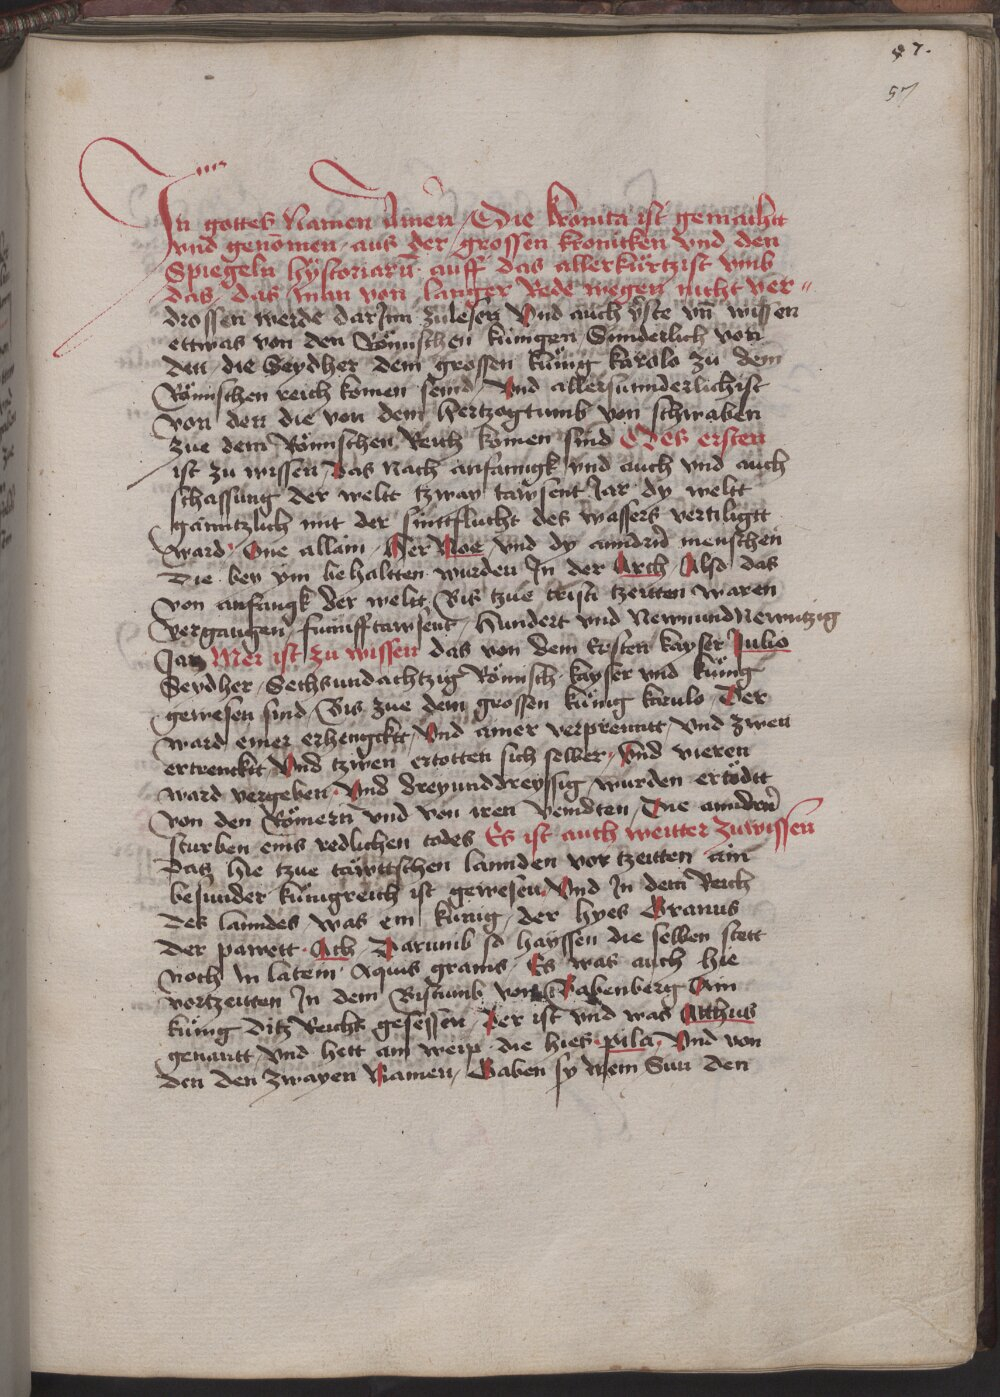 47.
57
In gottes Namen Amen / Die kronica ist gemacht
vnd genomen / aus der / grossen kronicken vnd den
Spiegeln hystoriarū auff das allerkürtzist vmb
das / das man von langer Rede wegen nicht ver„
drossen werde darjnn zulesen Vnd auch yſte vn̄ wissen
ettwas von den Römischen künigen / Sunderlich von
den / die Seydher dem grossen künig karolo zu dem
Römischen reich komen seind / Vnd allersunnderlichist
von den die von dem Hertzogtumb von schwaben
zue dem Römischen Reich komen sind Des ersten
ist zu wissen / Das Nach anfanngk vnd auch vnd auch
schassung der weltt tzway tawsent Jar dy weltt
ganntzlich mit der sinttflucht des wassers vertiligtt
ward / One allain / Her Noe / vnd dy anndrn̄ menschen
Die bey ym behaltten wurden In der Arch / Also das
von anfangk der weltt / Bis tzue cristi tzeitten waren
vergangen / funufftawsent / Hundert vnd NewnundNewntzig
Jar Mer ist zu wissen das von dem Ersten kayser Julio
Seydher / Sechsundachtzig Römisch kayser vnd künig
gewesen sind / Bis zue dem grossen künig karulo / Der
ward einer erhengcktt / Vnd ainer verprenntt / Vnd zwen
ertrenckt / Vnd tzwen ertotten sich selber / Vnd vieren
ward vergeben / Vnd dreyunddreyssig / wurden ertödtt
von den Römern̄ vnd von iren veindten / Die anndrn̄
sturben eins redlichen todes Es ist auch weitter zuwissen
Das hie tzue tawttschen lannden vor tzeitten ain
besunder künigreich ist gewesen / Vnd In dem Reich
des lanndes / was ein künig / der hyes Granus
Der pawett / Ach / Darumb so hayssen die selben stett
noch In latein / Aquis granis / Es was auch hie
vortzeitten In dem Bistumb von Babenberg Ain
künig ditz Reichs gesessen / Der ist vnd was Atthus
genantt / vnd hett ain weip / die hies pila / Vnd von
den den zwayen Namen / Gaben sy irem Sun den